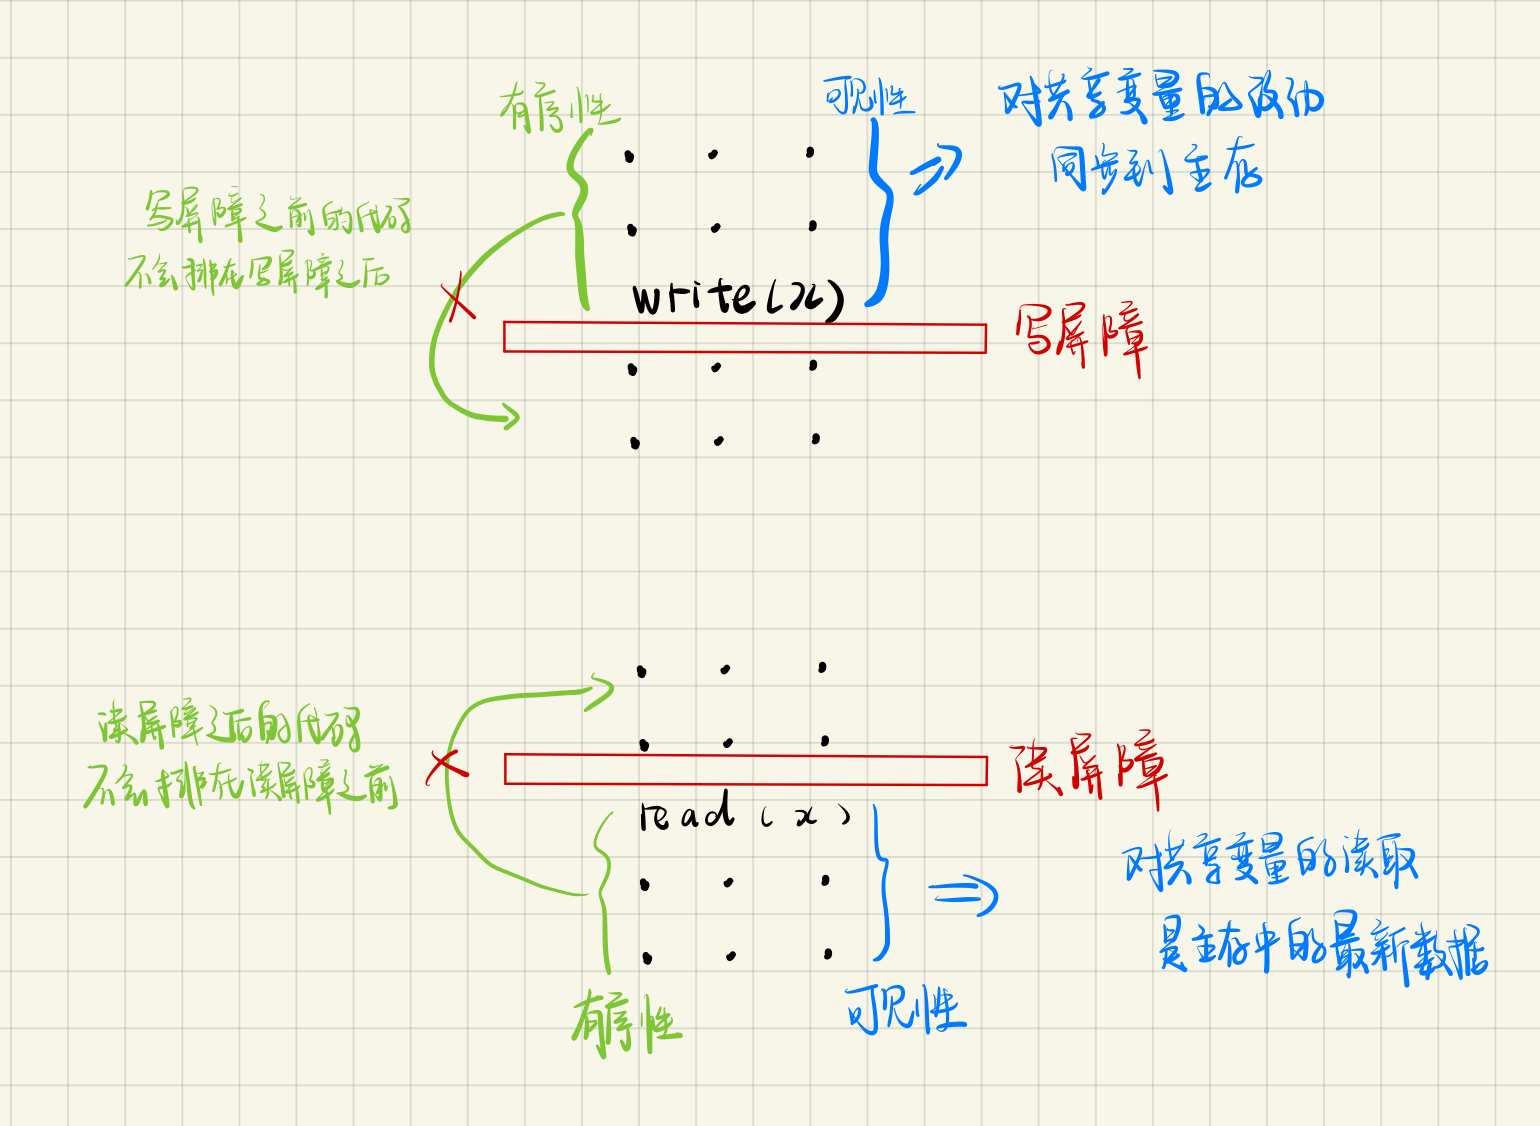 有序性
可见性
对共享变量的改动
同步到主存
写屏障之前的代码
不会排在写屏障之后
write(x)
写屏障
读屏障之后的代码
不会排在读屏障之前
读屏障
read(x)
对共享变量的读取
是主存中的最新数据
有序性
可见性